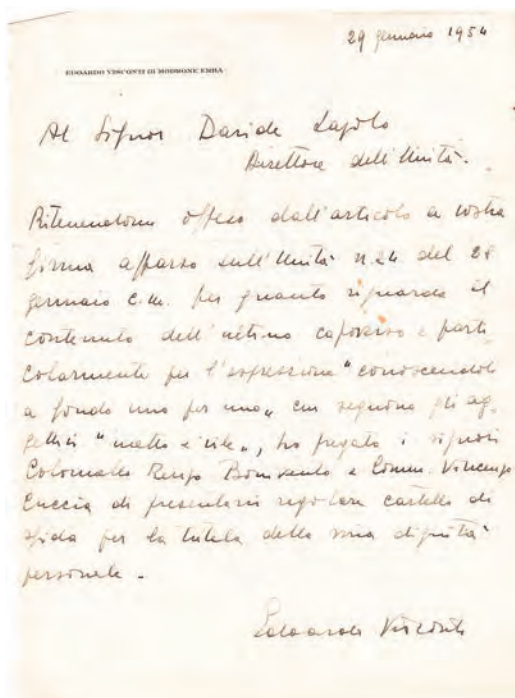 29 gennaio 1954
EDOARDO VISCONTI DI MODRONE EMRA
Al Signor Davide Lajolo
Direttore dell'Unità.
Ritenendomi offeso dall'articolo a vostra
firma apparso sull'Unità n.24 del 28
gennaio c.m. per quanto riguarda il
contenuto dell'ultimo capoverso e parti
colarmente per l'espressione "conoscendoli
a fondo uno per uno„ cui seguono gli ag-
gettivi "matto e vile„, ho pregato i signori
Colonnello Renzo Bonivento e Comm. Vincenzo
Cuccia di presentarvi regolare cartello di
sfida per la tutela della mia dignità
personale.
Edoardo Visconti